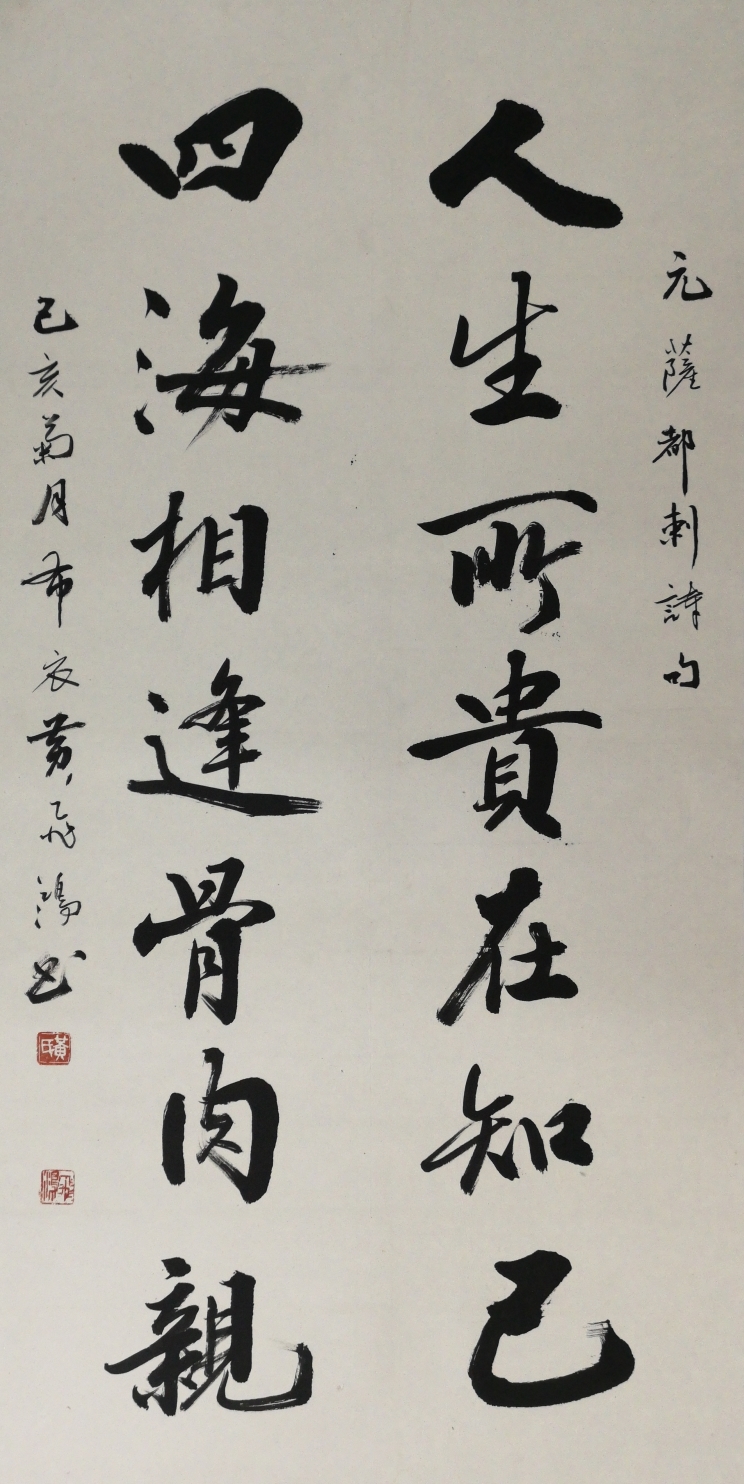 元薩都剌詩句
人生所貴在知己
四海相逢骨肉親
己亥菊月布衣黃飛鴻書
黃氏
飛鴻